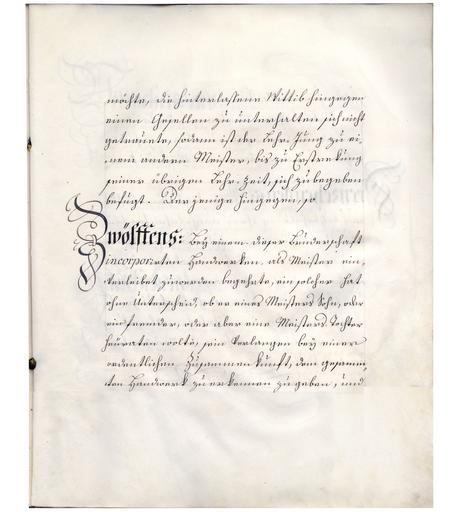 möchte, die hinterlassene Wittib hingegen
einen Gesellen zu unterhalten sich nicht
getrauete, sodann ist der Lehr-Jung zu ei-
nem andern Meister, bis zu Erstrekung
seiner übrigen Lehr-Zeit, sich zubegeben
befugt. Derjenige hingegen, so
Zwölfftens: Bey einem dieser Bruderschafft
incorporirten Handwerken, als Meister ein-
verleibet zuwerden begehrte, ein solcher hat
ohne Unterscheid, ob er eines Meisters Sohn, oder
ein fremder, oder aber eine Meisters Tochter
heuraten wolte, sein Verlangen bey einer
ordentlichen Zusammenkunft, dem gesamm-
ten Handwerk zu erkennen zu geben, und